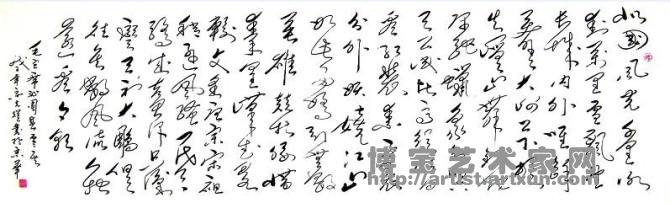 北国风光千里冰
封万里雪飘望
长城内外惟余
莽莽大河上下顿
失滔滔山舞银蛇
原驰蜡象欲与
天公试比高须晴日
看红装素裹
分外妖娆江山
如此多娇引无数
英雄竞折腰惜
秦皇汉武略
输文采唐宗宋祖
稍逊风骚一代天
骄成吉思汗只识
弯弓射大雕俱
往矣数风流人物
还看今朝
毛主席沁园春雪
书于京华
博宝艺术家网
http://artist.artxun.com